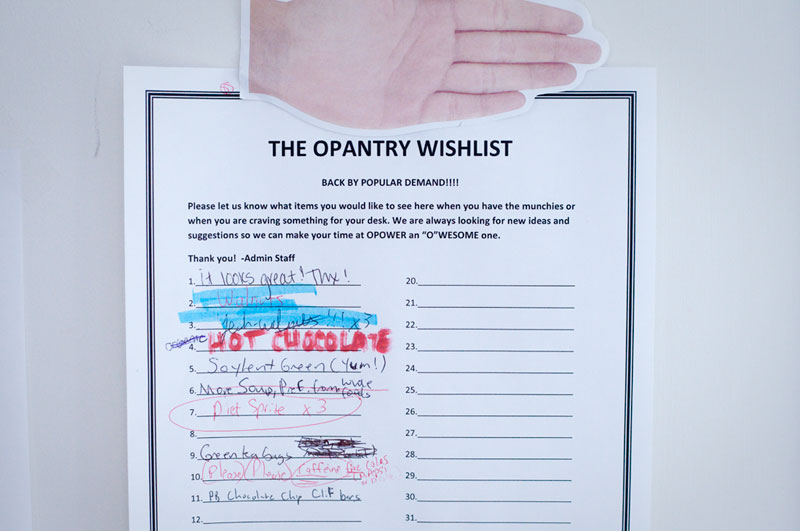 THE OPANTRY WISHLIST
BACK BY POPULAR DEMAND!!!!
Please let us know what items you would like to see here when you have the munchies or
when you are craving something for your desk. We are always looking for new ideas and
suggestions so we can make your time at OPOWER an “O”WESOME one.
Thank you! -Admin Staff
1. it looks great! Thx!
2. Walnuts
3. Yeah-walnuts!!! x3
4. HOT CHOCOLATE
5. Soylent Green (Yum!)
6. More Soup, Pref. from
7. Diet Sprite x 3
8.
9. Green tea bags
10. Please Please Caffeine free colas
11. PB Chocolate Chip CLIF bars
12.
20.
21.
22.
23.
24.
25.
26.
27.
28.
29.
30.
31.